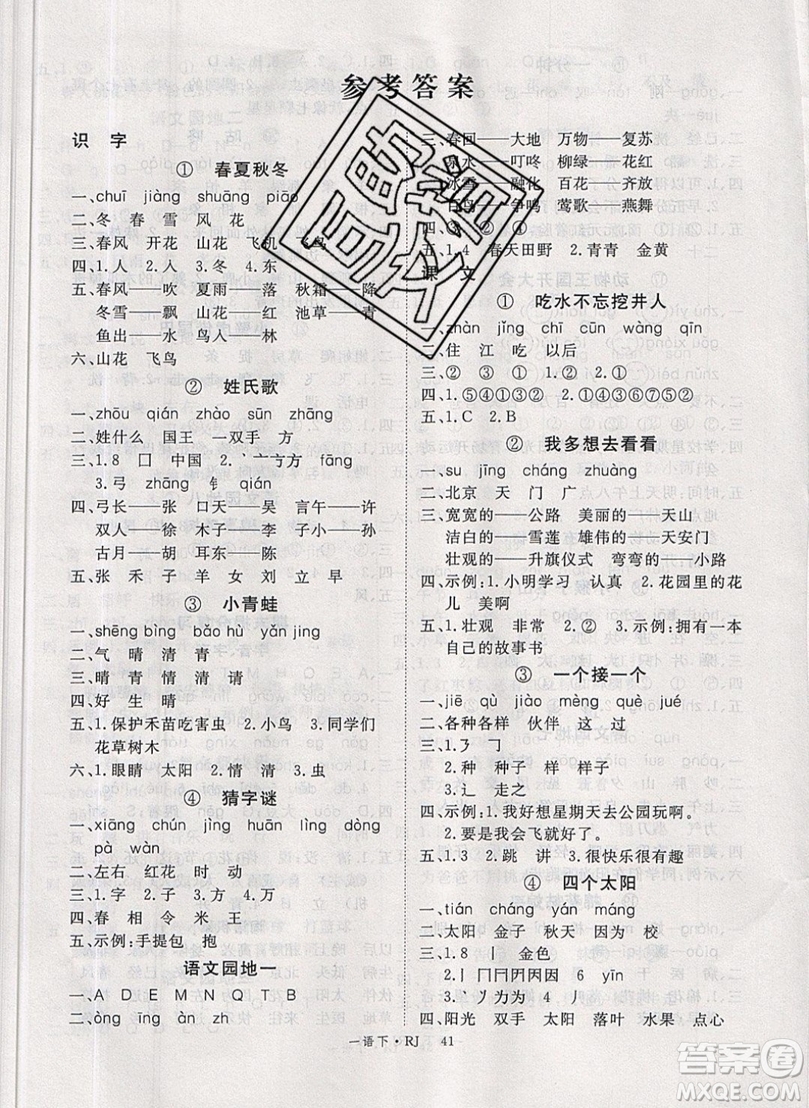 参考答案
识 字
① 春夏秋冬
一、chuī jiàng shuāng piāo
二、冬 春 雪 风 花
三、春风 开花 山花 飞机 飞鸟
四、1.人 2.人 3.冬 4.东
五、春风——吹 夏雨——落 秋霜——降
冬雪——飘 山花——红 池草——青
鱼出——水 鸟入——林
六、山花 飞鸟
② 姓氏歌
一、zhōu qián zhào sūn zhāng
二、姓什么 国王 一双手 方
三、1.8 囗 中国 2.丶亠方方 fāng
3.弓 zhāng 钅 qián
四、弓长——张 口天——吴 言午——许
双人——徐 木子——李 子小——孙
古月——胡 耳东——陈
五、张 禾 子 羊 女 刘 立 早
③ 小青蛙
一、shēng bìng bǎo hù yǎn jing
二、气 晴 清 青
三、晴 青 情 清 清 请
四、好 生 晴
五、1.保护禾苗吃害虫 2.小鸟 3.同学们
花草树木
六、1.眼睛 太阳 2.情 清 3.虫
④ 猜字谜
一、xiāng chún jìng huān lìng dòng
pà wàn
二、左右 红花 时 动
三、1.字 2.子 3.方 4.万
四、春 相 令 米 王
五、示例：手提包 抱
语文园地一
一、A D E M N Q T B
二、òng īng àn zh
三、春回——大地 万物——复苏
泉水——叮咚 柳绿——花红
冰雪——融化 百花——齐放
百鸟——争鸣 莺歌——燕舞
四、③ ② ① ④
五、1.4 春天田野 2.青青 金黄
课 文
① 吃水不忘挖井人
一、zhàn jǐng chī cūn wàng qīn
二、住 江 吃 以后
三、② ③ ① 1.② 2.①
四、1.⑤④①③②⑥⑦⑤②
五、1.C 2.B
② 我多想去看看
一、su jīng cháng zhuàng
二、北京 天 门 广
三、宽宽的——公路 美丽的——天山
洁白的——雪莲 雄伟的——天安门
壮观的——升旗仪式 弯弯的——小路
四、示例：1.小明学习 认真 2.花园里的花
儿 美啊
五、1.壮观 非常 2.② 3.示例：拥有一本
自己的故事书
③ 一个接一个
一、jiē qù jiào mèng què jiù
二、各种各样 伙伴 这 过
三、1.㇋ ㇆
2.种 种子 样 样子
3.辶 走之
四、示例：1.我好想星期天去公园玩啊。
2.要是我会飞就好了。
五、1.③ 2.跳 讲 3.很快乐很有趣
④ 四个太阳
一、tián cháng yán máng
二、太阳 金子 秋天 因为 校
三、1.8 丨 金色
四、阳光 双手 太阳 落叶 水果 点心
一语下·RJ 41
答案圈
MXQE.COM